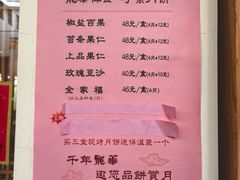 椒盐百果 48元/盒(4只×12元)
苔条果仁 48元/盒(4只×12元)
上品果仁 48元/盒(4只×12元)
玫瑰豆沙 40元/盒(4只×10元)
全家福 46元/盒(4只)
买三盒现烤月饼送保温袋一个
千年龍華
邀您品餅賞月